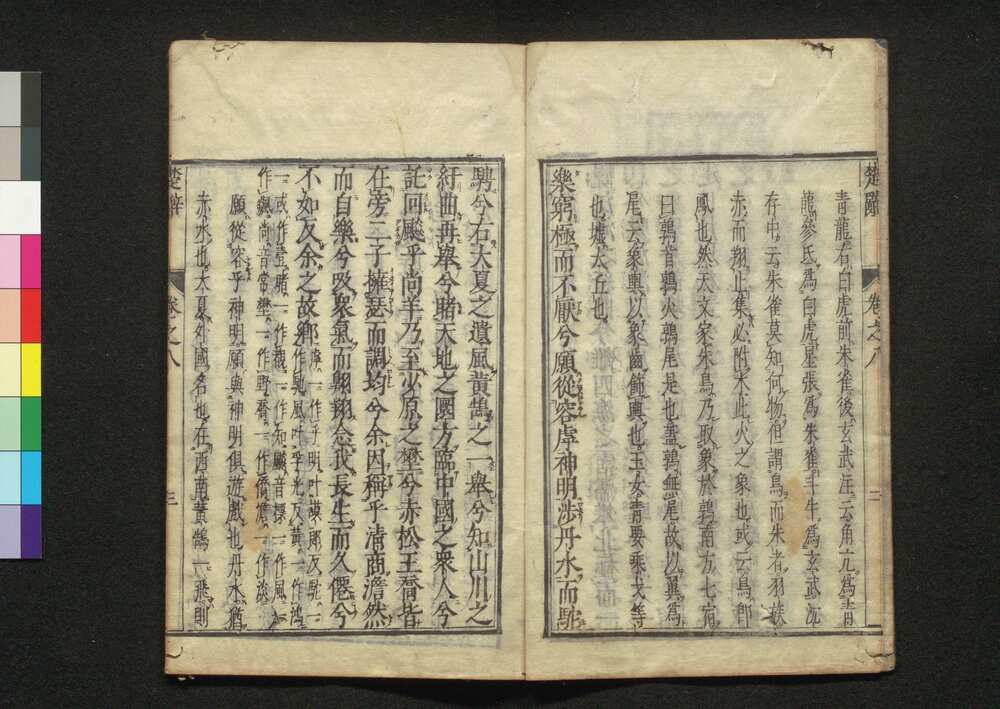 楚辭
卷之八
三
青龍右白虎前朱雀後玄武注云角亢爲青
龍參氐爲白虎星張爲朱雀斗牛爲玄武沈
存中云朱雀莫知何物但謂鳥而朱者羽族
赤而翔止集必附木此火之象也或云鳥卽
鳳也然天文家朱鳥乃取象於鶉南方七宿
曰鶉首鶉火鶉尾是也蓋鶉無尾故以翼爲
尾云象輿以象齒飾輿也玉女靑要乘弋等
也墟大丘也
樂窮極而不厭兮願從容虖神明涉丹水而駝
騁兮右大夏之遺風黃鵠之一舉兮知山川之
紆曲再舉兮睹天地之圜方臨中國之衆人兮
託回飇乎尚羊乃至少原之壄兮赤松王喬皆
在旁二子擁瑟而調均兮余因稱乎清商澹然
而自樂兮吸衆氣而翺翔念我長生而久僊兮
不如反余之故鄉
一作馳風叶孚光反黃一作鴻
一或作壹睹一作覩一作知飇音標一作風
作飆尚音常壄一作野喬一作僑僑一作淡
願從容乎神明願與神明俱遊戲也丹水猶
赤水也大夏外國名也在西南黃鵠一飛則
楚辭
卷之八
三